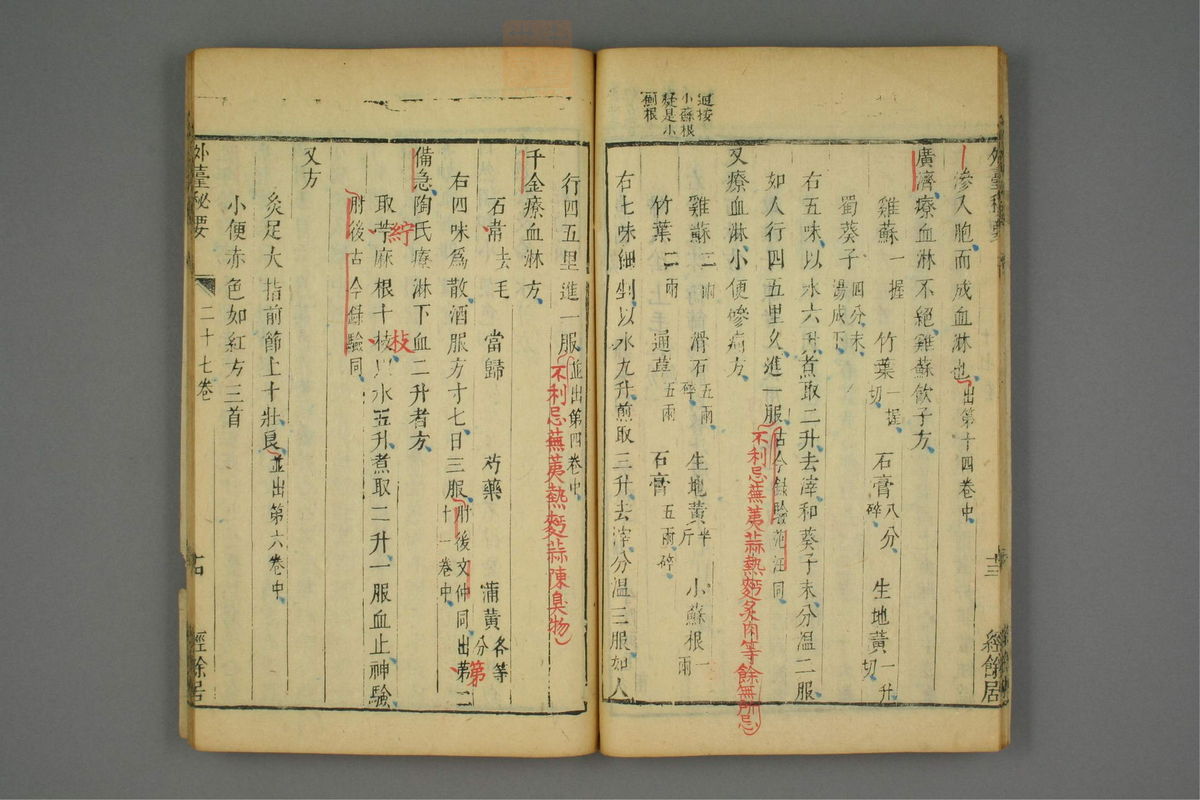 迥按
小蘇根
疑是小
薊根
外臺秘要
十三
經餘居
滲入胞而成血淋也出第十四卷中
廣濟療血淋不絕雞蘇飲子方
雞蘇一握 竹葉一握切 石膏八分碎 生地黃一升切
蜀葵子四分末湯成下
右五味以水六升煮取二升去滓和葵子末分溫二服
如人行四五里久進一服古今錄驗范汪同
不利忌蕪荑蒜熱麪炙肉等餘無所忌
又療血淋小便慘痛方
雞蘇二兩 滑石五兩碎 生地黃半斤 小蘇根一兩
竹葉二兩 通草五兩 石膏五兩碎
右七味細剉以水九升煎取三升去滓分溫三服如人
行四五里進一服並出第四卷中
不利忌蕪荑熱麪蒜陳臭物
千金療血淋方
石韋去毛 當歸 芍藥 蒲黃各等分
右四味為散酒服方寸七日三服肘後文仲同出第二十一卷中
第
備急陶氏療淋下血二升者方
取苧麻根十枚以水五升煮取二升一服血止神驗
紵
枝
肘後古今錄驗同
又方
灸足大指前節上十壯良並出第六卷中
小便赤色如紅方三首
外臺秘要
二十七卷
十四
經餘居